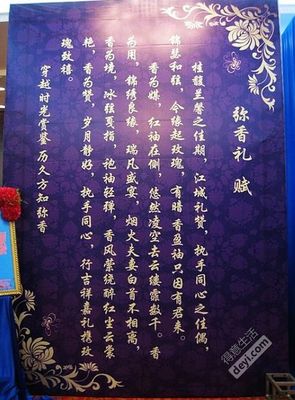 弥香礼 赋
桂馥兰馨之佳期，江城礼赞，执手同心之佳偶，
锦瑟和弦，今缘起玫瑰，有暗香盈袖只因有君来。
香为媒，红袖在侧，悠然凌空去云缕霞数千。香
为用。锦绣良缘，瑞凡盛宴，烟火夫妻白首不相离，
香为境，冰弦戛指，袍袖轻弹，香风萦绕醉红尘云裳
艳，香为赞，岁月静好，执手同心，行吉祥嘉礼携玫
瑰致禧。
穿越时光赏鉴 历久方知弥香
得意生活
deyi.com